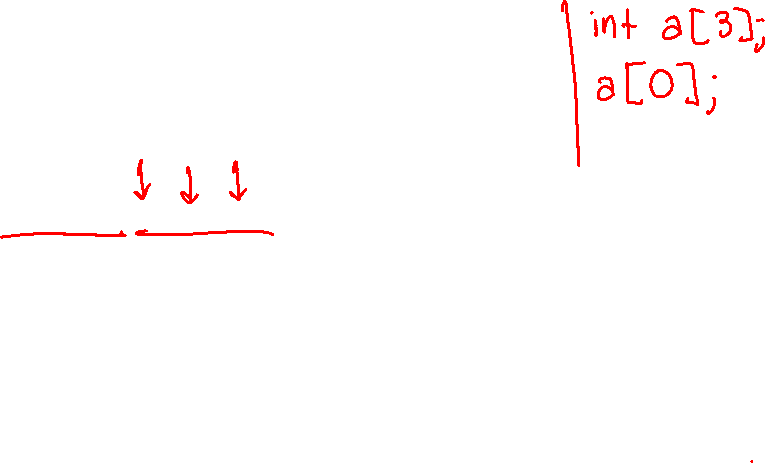 int a[3];
a[0];